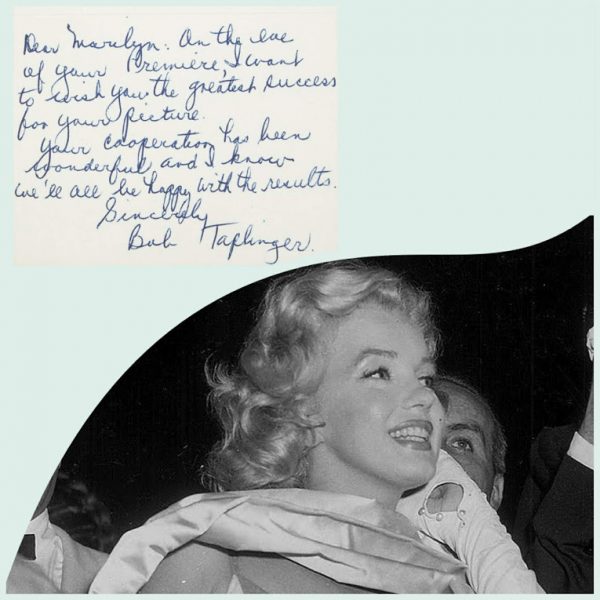 Dear Marilyn: On the eve
of your Premiere, I want
to wish you the greatest success
for your picture.
Your cooperation has been
wonderful, and I know
we'll all be happy with the results.
Sincerely
Bob Taplinger.